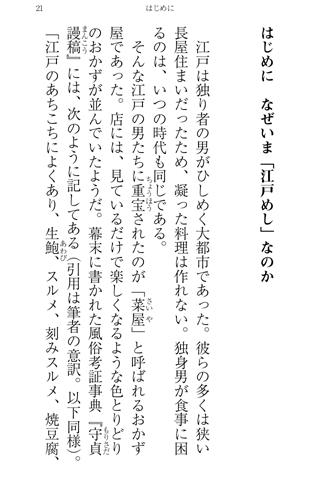 21
はじめに
はじめに　なぜいま「江戸めし」なのか
江戸は独り者の男がひしめく大都市であった。彼らの多くは狭い
長屋住まいだったため、凝った料理は作れない。独身男が食事に困
るのは、いつの時代も同じである。
そんな江戸の男たちに重宝されたのが「菜屋」と呼ばれるおかず
屋であった。店には、見ているだけで楽しくなるような色とりどり
のおかずが並んでいたようだ。幕末に書かれた風俗考証事典、『守貞
謾稿』には、次のように記してある（引用は筆者の意訳。以下同様）。
「江戸のあちこちによくあり、生鮑、スルメ、刻みスルメ、焼豆腐、